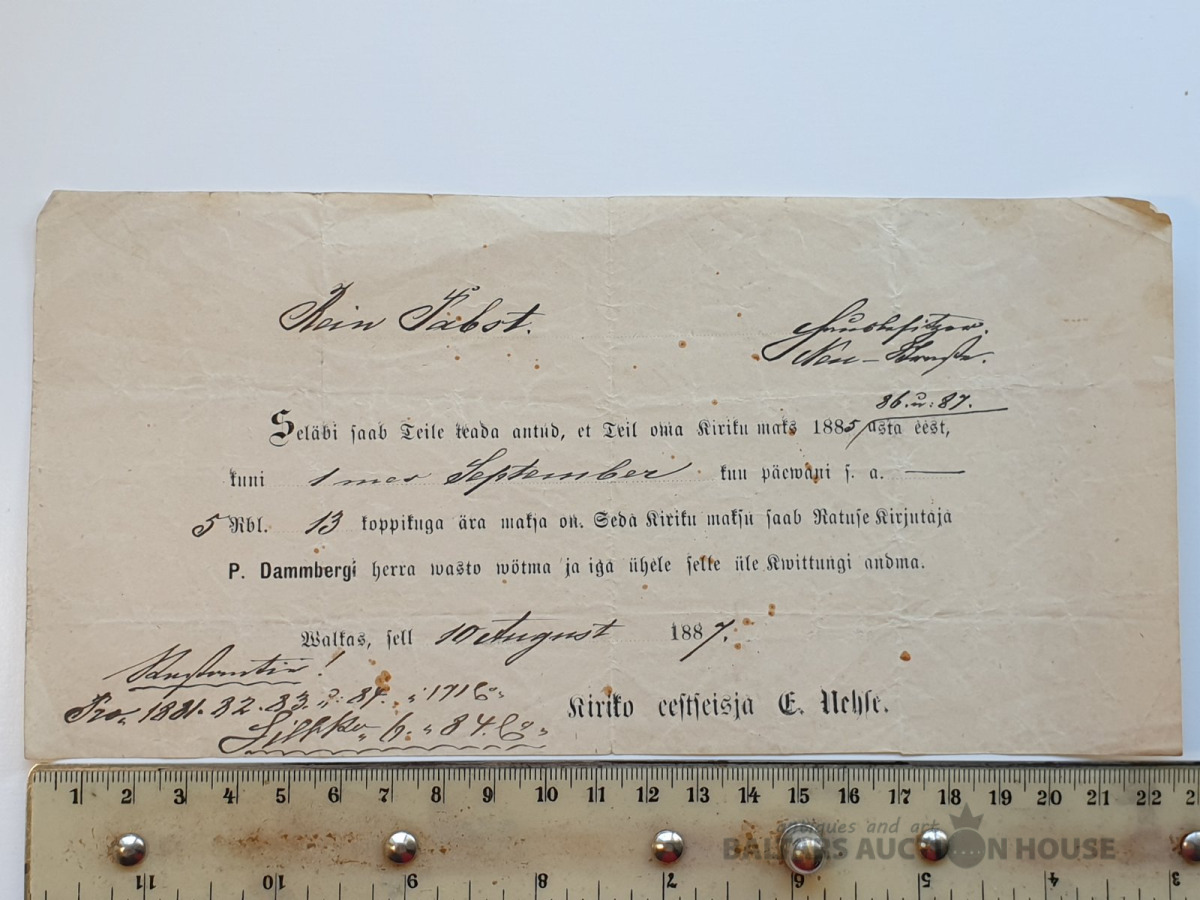 Rein Pabst.
Hausbesitzer.
Neu-Strasse.
86. u: 87.
Seläbi saab Teile teada antud, et Teil oma Kiriku maks 1885 asta eest,
kuni 1 mes September kuu päewani s. a.
5 Rbl. 13 koppikuga ära maksa on. Seda Kiriku maksu saab Ratuse Kirjutaja
P. Dammbergi herra wasto wötma ja iga ühele selle üle Kwittungi andma.
Walkas, sell 10 August 1887.
Restantie!
Pro 1881. 82. 83. 84. 1 71
6. 84
Kiriko eestseisja E. Uehse.
1 2 3 4 5 6 7 8 9 10 11 12 13 14 15 16 17 18 19 20 21 22 2
antiques and art
BALTARS AUCTION HOUSE
11 10 9 8 7 6 5 4 3